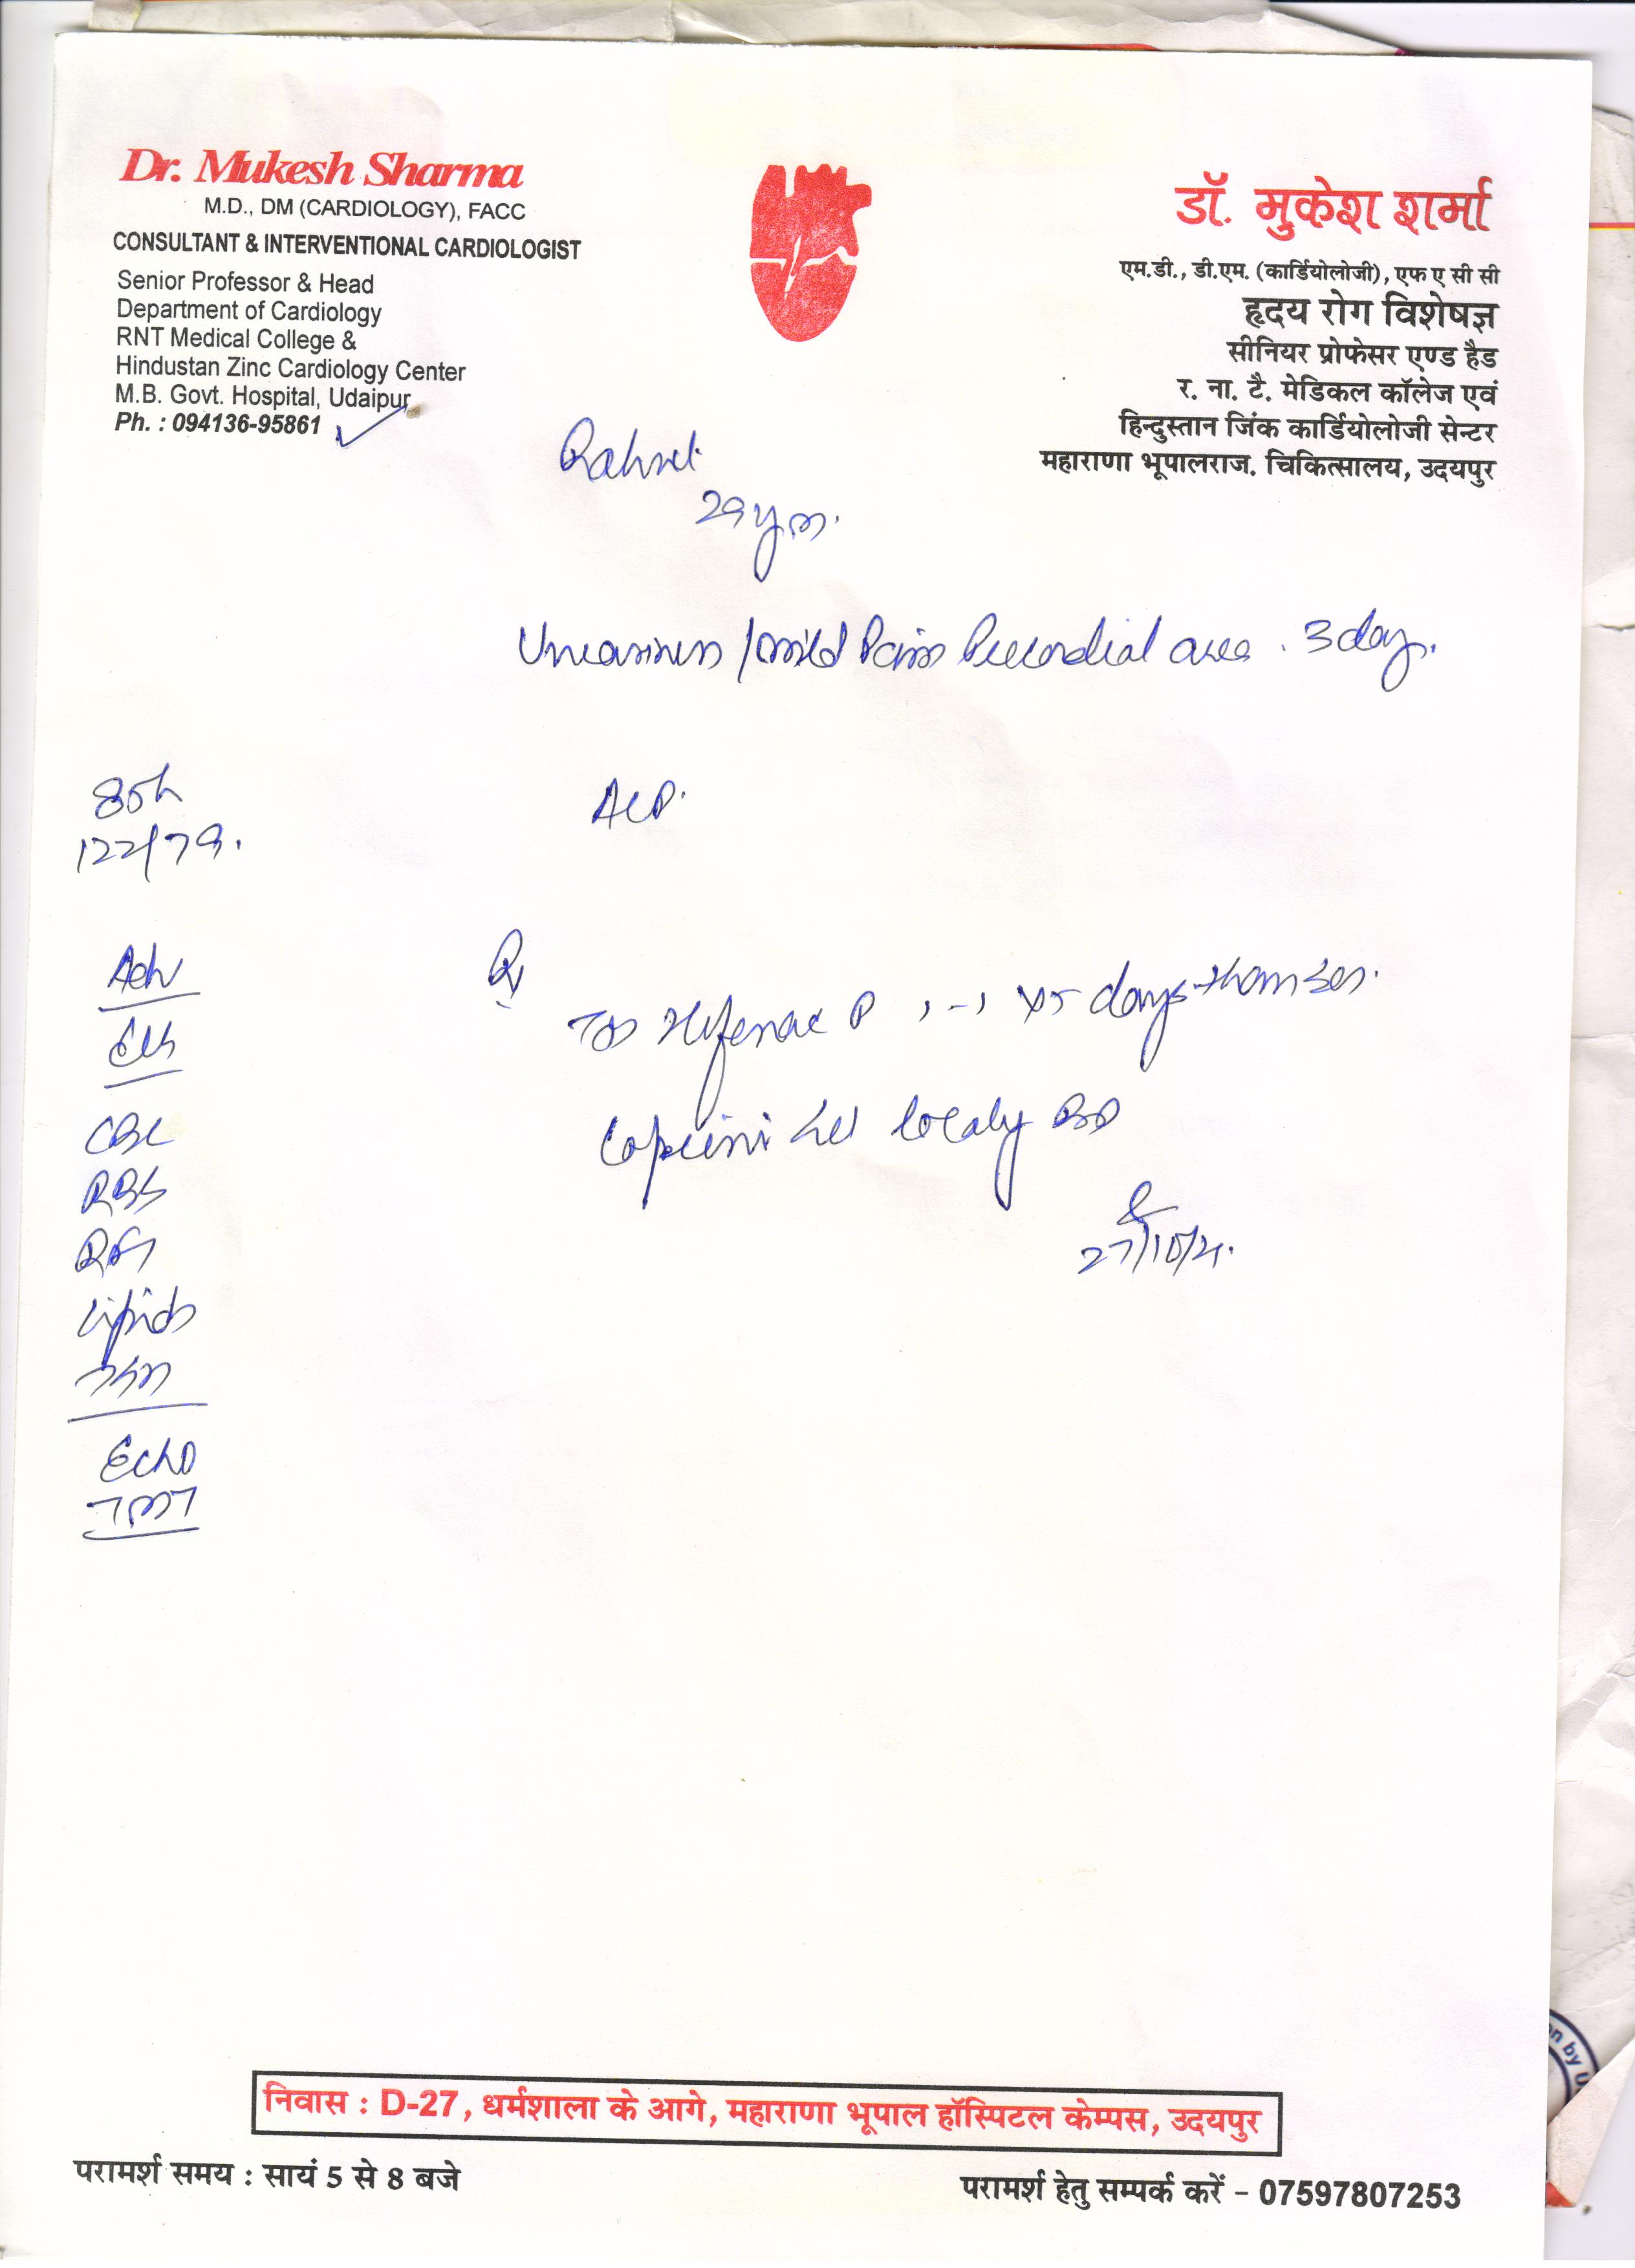 Dr. Mukesh Sharma
M.D., DM (CARDIOLOGY), FACC
CONSULTANT & INTERVENTIONAL CARDIOLOGIST
Senior Professor & Head
Department of Cardiology
RNT Medical College &
Hindustan Zinc Cardiology Center
M.B. Govt. Hospital, Udaipur
Ph. : 094136-95861
डॉ. मुकेश शर्मा
एम.डी., डी.एम. (कार्डियोलोजी), एफ ए सी सी
हृदय रोग विशेषज्ञ
सीनियर प्रोफेसर एण्ड हैड
र. ना. टै. मेडिकल कॉलेज एवं
हिन्दुस्तान जिंक कार्डियोलोजी सेन्टर
महाराणा भूपालराज. चिकित्सालय, उदयपुर
29 y m.
Uneasiness / mild Pain Precordial area . 3 day.
122/79.
Adv
CBC
RBS
RFT
Lipids
TSH
Echo
TMT
Rx
days
localy BD
निवास : D-27, धर्मशाला के आगे, महाराणा भूपाल हॉस्पिटल केम्पस, उदयपुर
परामर्श समय : सायं 5 से 8 बजे
परामर्श हेतु सम्पर्क करें - 07597807253